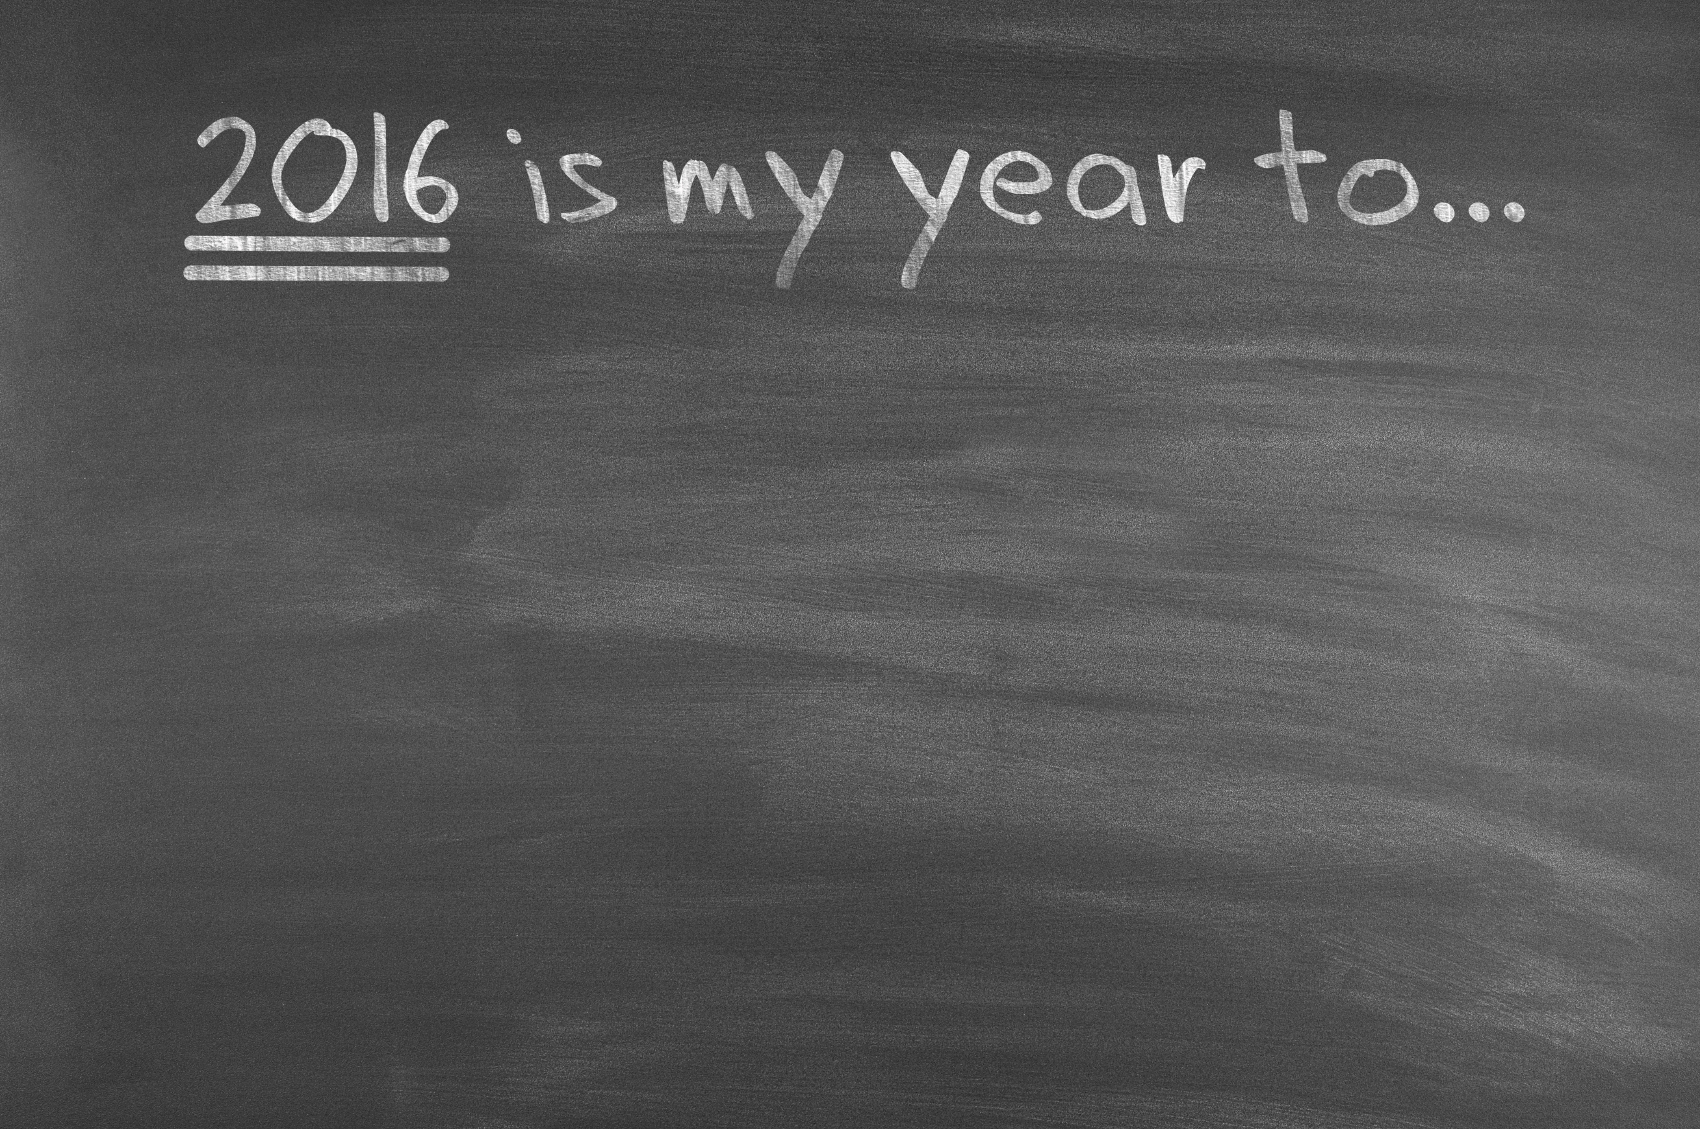 2016 is my year to...